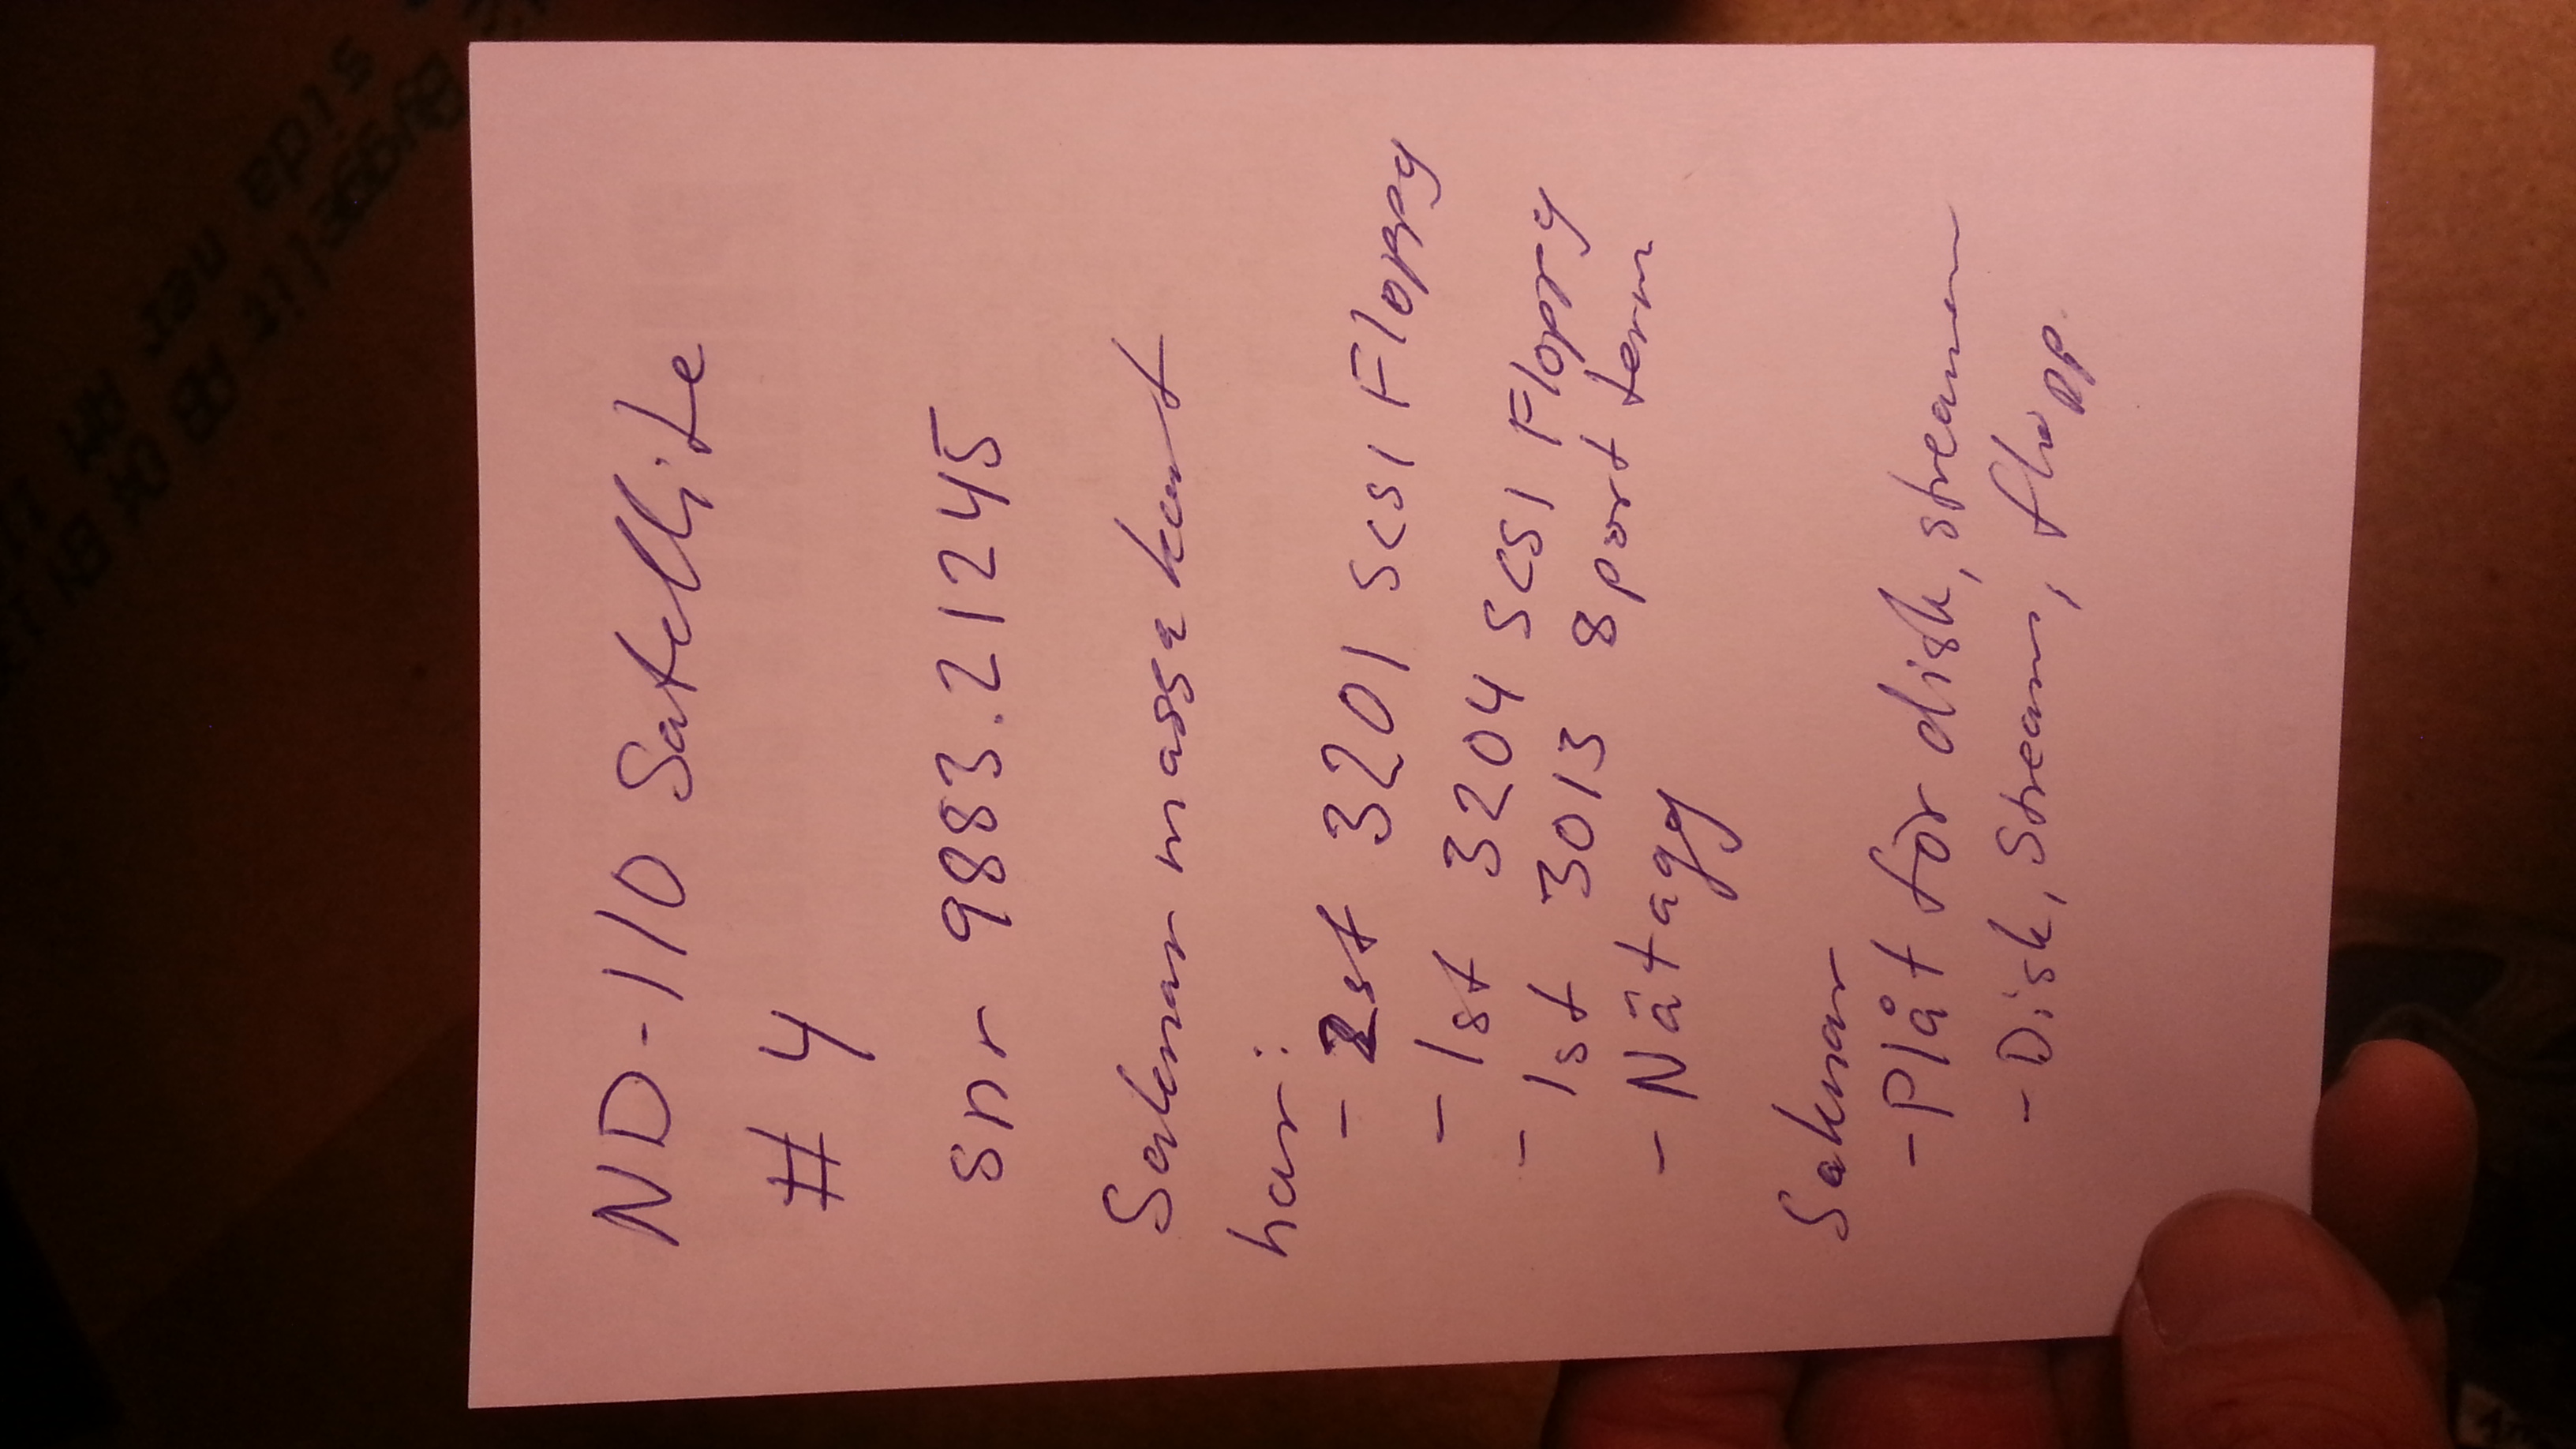 ND-110 Satellite
# 4
snr 9883.21245
Saknar massa kort
har:
- 2st 3201 SCSI Floppy
- 1st 3204 SCSI Floppy
- 1st 3013 8 port term
- Nätagg
Saknar
- Plåt för disk, streamer
- Disk, Stream, flopp